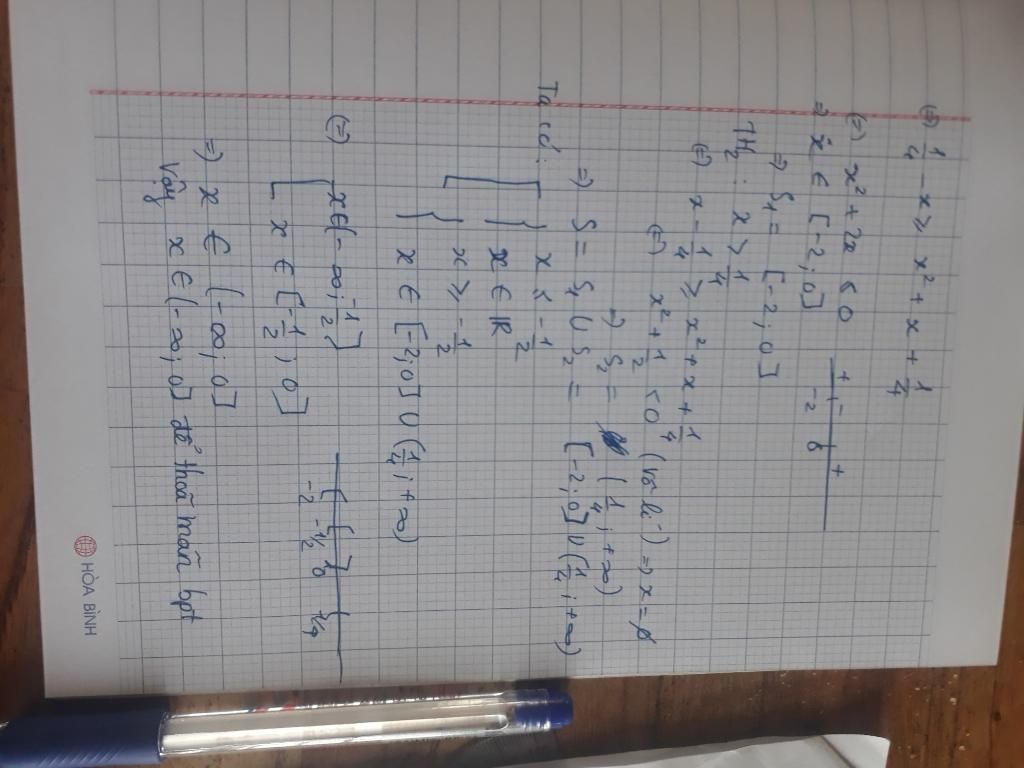 (=) 1/4 - x ≥ x² + x + 1/4
(=) x² + 2x ≤ 0
=) x ∈ [-2; 0]
+ - +
-2 0
=) S₁ = [-2; 0]
TH₂: x > 1/4
(=) x - 1/4 ≥ x² + x + 1/4
(=) x² + 1/2 < 0 (vô lí) => x = ∅
=) S₂ = (1/4; +∞)
=) S = S₁ ∪ S₂ = [-2; 0] ∪ (1/4; +∞)
Ta có: [ { x ≤ -1/2
x ∈ ℝ
{ x ≥ -1/2
x ∈ [-2; 0] ∪ (1/4; +∞)
(=) [ x ∈ (-∞; -1/2]
x ∈ [-1/2; 0]
-2 -1/2 0 1/4
=) x ∈ (-∞; 0]
Vậy x ∈ (-∞; 0] để thoã mãn bpt
HÒA BÌNH